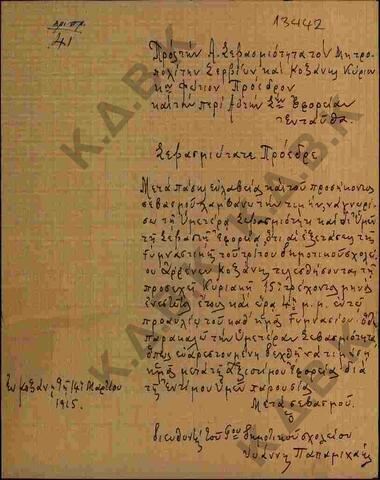 ἀρι.πρ.
41
13442
Πρὸς τὴν Α. Σεβασμιότητα τὸν Μητρο-
πολίτην Σερβίων καὶ Κοζάνης Κύριον
Κον Φώτιον Πρόεδρον
καὶ τὴν περὶ Αὐτὴν Σην Ἐφορείαν
Ἐνταῦθα.
Σεβασμιώτατε Πρόεδρε
Μετὰ πάσης εὐλαβείας καὶ τοῦ προσήκοντος
σεβασμοῦ λαμβάνω τὴν τιμὴν, νὰ γνωρί-
σω τῇ Ὑμετέρᾳ Σεβασμιότητι καὶ δι' Ὑμῶν
τῇ Σεβαστῇ Ἐφορείᾳ, ὅτι αἱ ἐξετάσεις τῆς
Γυμναστικῆς τοῦ τρίτου δημοτικοῦ σχολεί-
ου Ἀρρένων Κοζάνης τελεσθήσονται τῇ
προσεχεῖ Κυριακῇ 15ῃ τρέχοντος μηνὸς
ἐνεστῶτος ἔτους καὶ ὥρᾳ 4ῃ μ.μ. ἐν τῷ
προαυλίῳ τοῦ καθ' ἡμᾶς Γυμνασίου
παρακαλῶ τὴν Ὑμετέραν Σεβασμιότητα,
ὅπως εὐαρεστουμένη δεχθῇ νὰ τιμήσῃ
ἡμᾶς μετὰ τῆς Ἀξιοτίμου Ἐφορείας διὰ
τῆς ἐντίμου Ὑμῶν παρουσίας
Μετὰ σεβασμοῦ.
Ἐν Κοζάνῃ τῇ 14ῃ Μαρτίου
1915.
ὁ
διευθυντὴς τοῦ Γου δημοτικοῦ σχολείου
Ἰωάννης Παπαμιχαήλ
Κ.Δ.Β.Κ
Κ.Δ.Β.Κ
Κ.Δ.Β.Κ